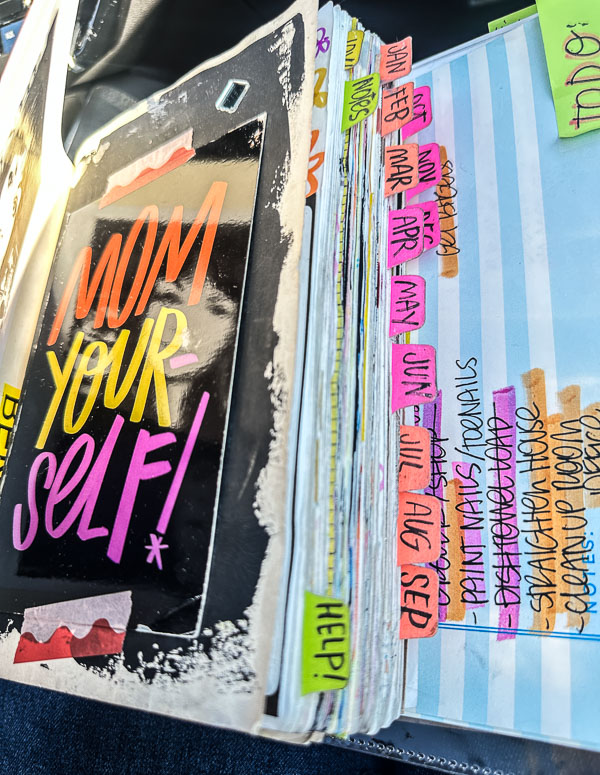 MOM
YOUR-
SELF!
*
NOTES
HELP!
JAN
FEB
MAR
APR
MAY
JUN
JUL
AUG
SEP
OCT
NOV
DEC
TO DO:
SHOP
- PAINT NAILS/TOENAILS
- DISHTOWEL LOAD
- STRAIGHTEN HOUSE
- CLEAN UP ROOM
OFFICE
NOTES: